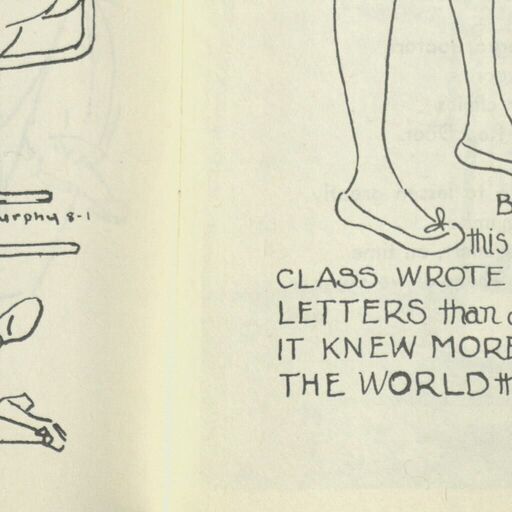 urphy 8-1
B
this
CLASS WROTE
LETTERS than
IT KNEW MORE
THE WORLD th